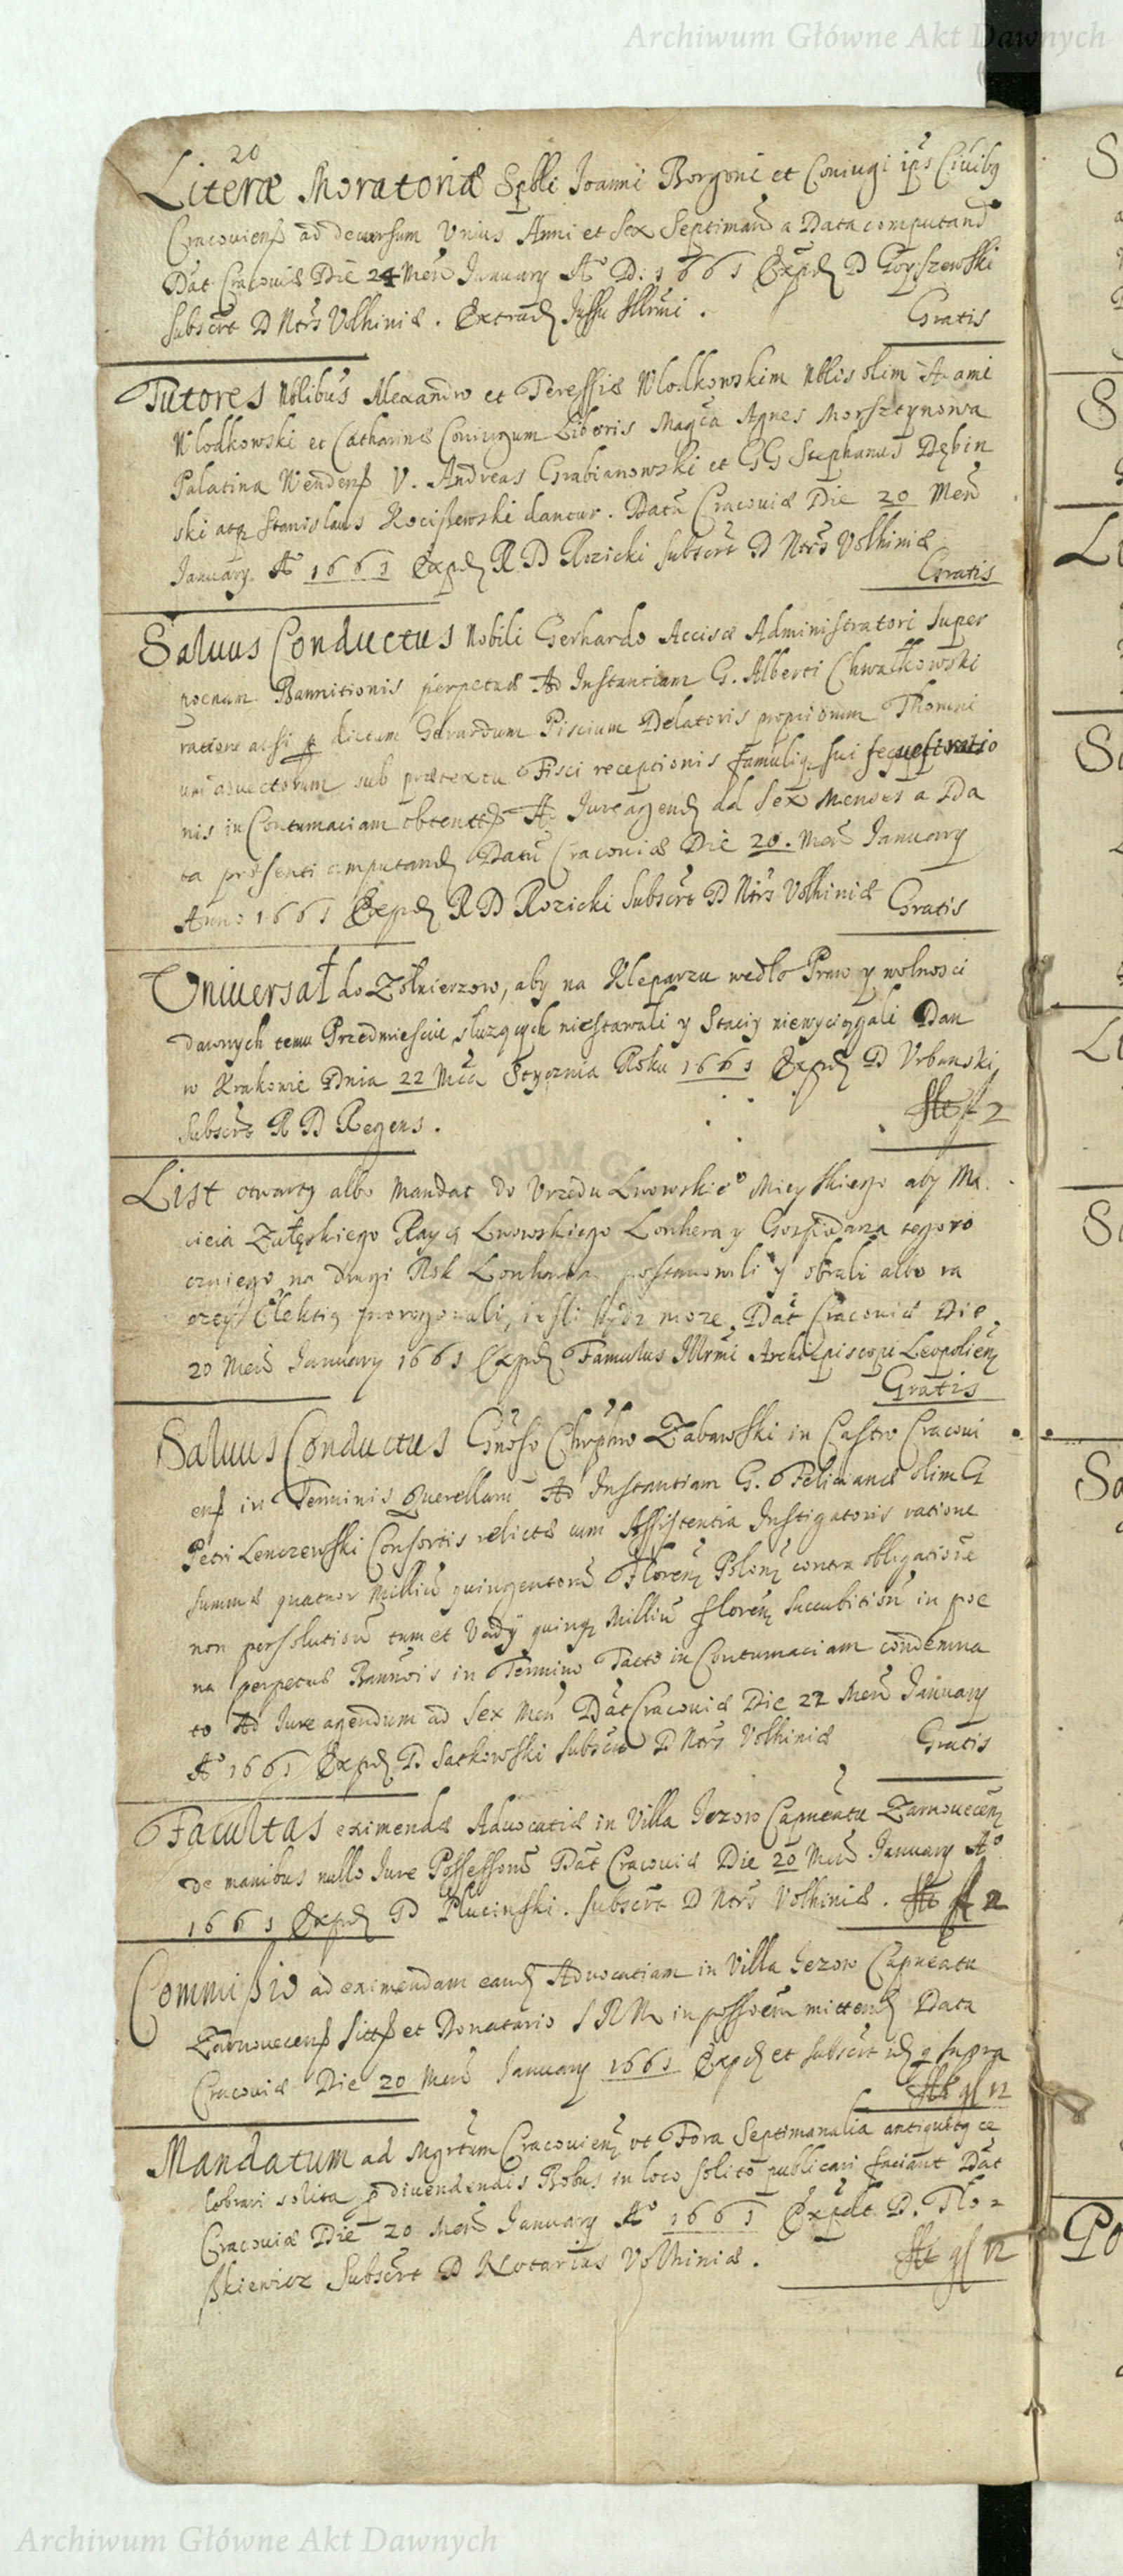 Archiwum Główne Akt Dawnych
20
Literæ Moratoriæ Spbli Joanni Borgoni et Coniugi ips Ciuibq
Cracouiens ad decursum Unius Anni et Sex Septiman a Data computand
Dat Cracouiæ Die 24 Men January Ao D: 1661 Exped D
Subscrt D Ntrs Volhiniæ. Extrad Jussu Illrmi.
Gratis
Tutores Nblibus Alexandro et Teressiæ Wlodkowskim Nblis olim Adami
Wlodkowski et Catharinæ Coniugum Liberis Magca Agnes Morsztynowa
Palatina Wendens V. Andreas Grabianowski et GG Stephanus Dębin
ski atq Stanislaus Kocissewski dantur. Datu Cracouiæ Die 20 Men
January Ao 1661 Exped R D Rozicki Subscrt D Ntrs Volhiniæ
Gratis
Saluus Conductus Nobili Gerhardo Accisæ Administratori super
poenam Bannitionis perpetuæ Ad Instantiam G. Alberti Chwałkowski
ratione acsi p dictum Gerardum Piscium Delatoris propriorum
aduectorum sub prætextu Fisci receptionis famuliq sui
nis in Contumaciam obtent Ad Jure agend ad Sex Menses a Da
ta præsenti computand Datu Cracouiæ Die 20. Men January
Anno 1661 Exped R D Rozicki Subscrt D Ntrs Volhiniæ
Gratis
Uniuersał do Zołnierzow, aby na Kleparzu wedlo Praw y wolnosci
dawnych temu Przedmiesciu służących niestawali y Stacij niewyciągali Dan
w Krakowie Dnia 22 Mca Stycznia Roku 1661 Exped D Vrbanski
Subscrt R D Regens.
f 2
List otwarty albo Mandat do Vrzędu Lwowskieo Mieyskiego aby Ma
cieia Załęskiego Raycę Lwowskiego Lonhera y Gospodarza tegoro
czniego na drugi Rok Lonhera postanowili y obrali albo ra
czey Elektią prorogowali, iesli bydz może. Dat Cracouiæ Die
20 Men January 1661 Exped Famulus Illrmi Archiepiscopi Leopolien
Gratis
Saluus Conductus Gnoso Chrphro Zabawski in Castro Cracoui
ens in Terminis Querellaru Ad Instantiam G. Felicianæ olim G
Petri Lenczewski Consortis relictæ cum Assistentia Instigatoris ratione
summæ quatuor Milliu quingentoru Floren Polon contra obligatione
non persolution tum et Vadij quinq Milliu floren succubition in poe
na perpetuæ Bannois in Termino Tacto in Contumaciam condemna
to Ad Jure agendum ad Sex Men Dat Cracouiæ Die 22 Men January
Ao 1661 Exped D. Satkowski Subscrt D Ntrs Volhiniæ
Gratis
Facultas eximendæ Aduocatiæ in Villa Jezow Capneatu Zarnouecen
de manibus nullo Jure Possessoru Dat Cracouiæ Die 20 Men January Ao
1661 Exped D Plucinski. Subscrt D Ntrs Volhiniæ.
Commissio ad eximendam eand Aduocatiam in Villa Jezow Capneatu
Zarnouecens et Donatario S R M in possoem mittend Data
Cracouiæ Die 20 Men January 1661 Exped et Subscrt id q supra
12
Mandatum ad Mgrtum Cracouien ut Fora Septimanalia antiquitq ce
lebrari solita p diuendendis Bobus in loco solito publicari faciant Dat
Cracouiæ Die 20 Men January Ao 1661 Expdt D. Tło=
sskiewicz Subscrt D Notarius Volhiniæ.
12
Archiwum Główne Akt Dawnych